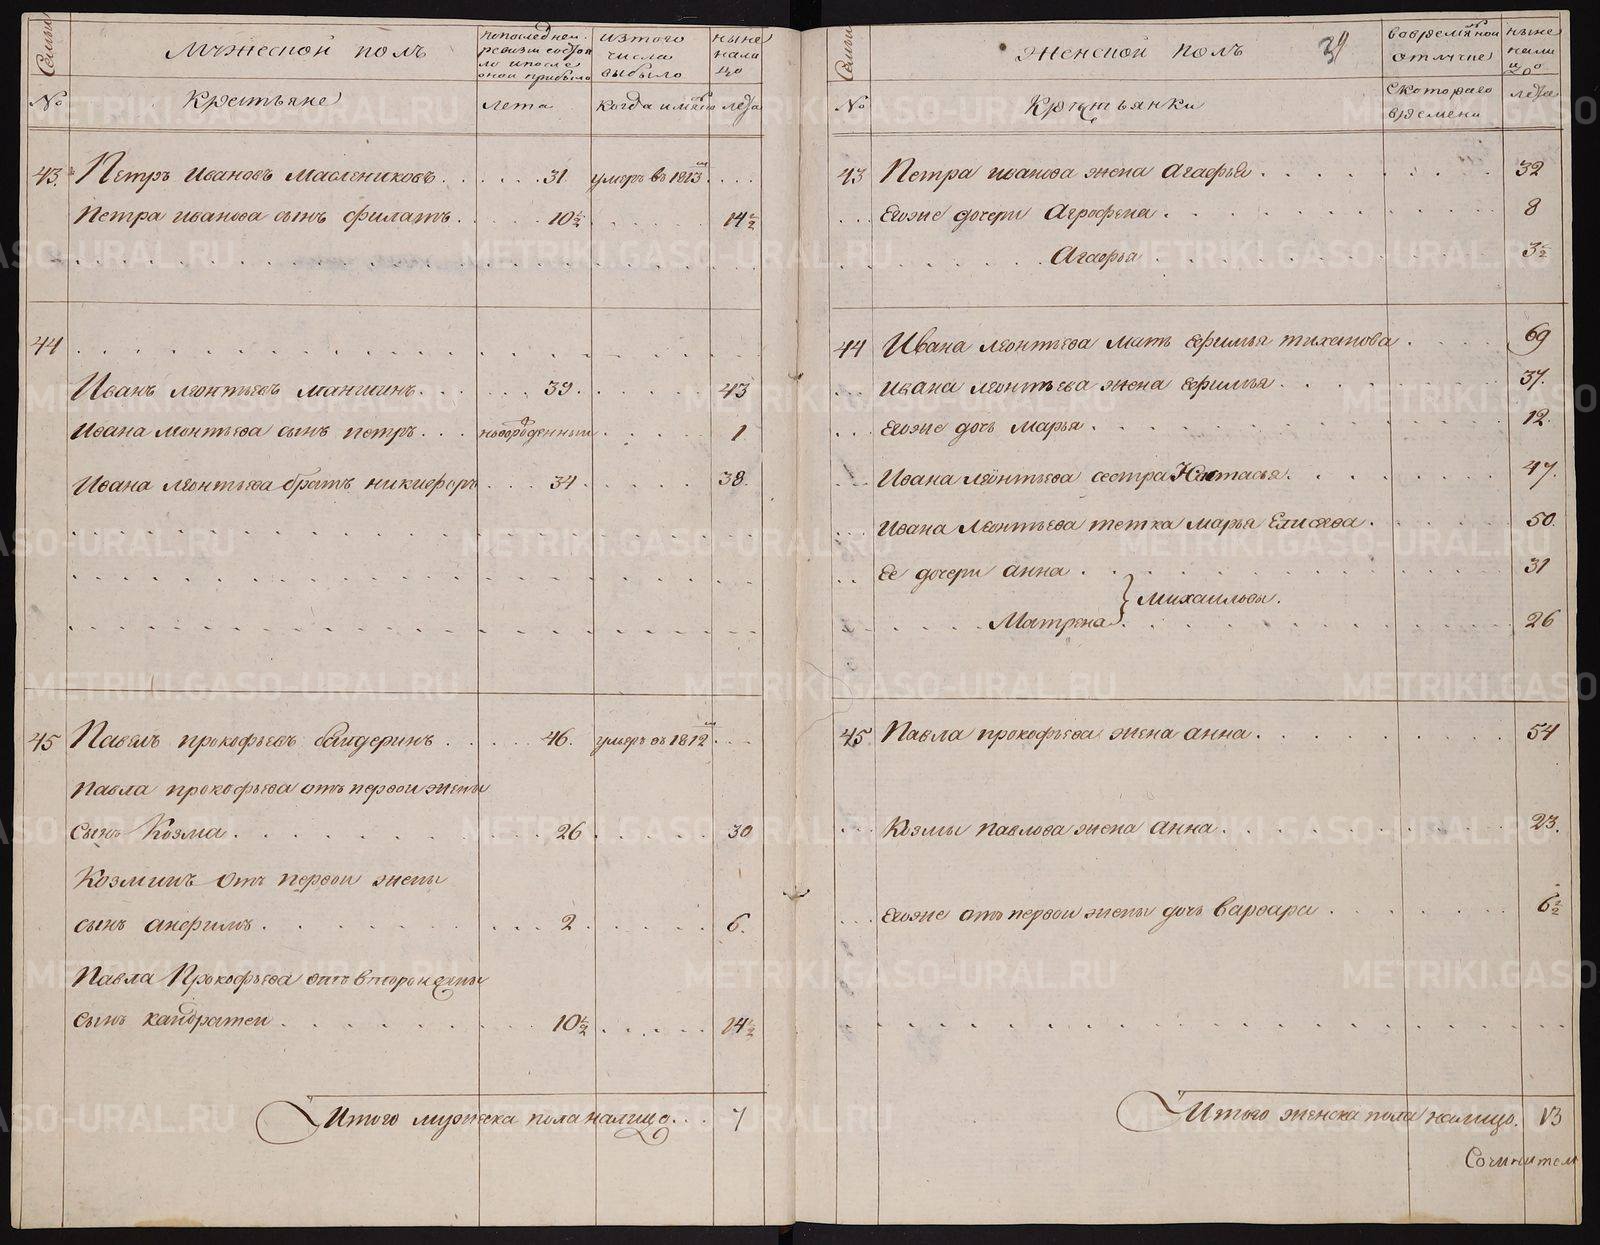 Семьи
Мужеской полъ
попоследней ревизии состояло ипосле оной прибыло
изтого числа выбыло
ныне налицо
№
Крестьяне
лета
когда имянно
лета
43. Петръ ивановъ маслениковъ . . . 31 умеръ въ 1813м . . .
Петра иванова сынъ филатъ . . . 10½ . . . 14½
44
Иванъ леонтьевъ маншинъ . . . 39 . . . 43
Ивана леонтьева сынъ петръ . . . новорожденный . . . 1
Ивана леонтьева братъ никифоръ . . . 34 . . . 38.
45 Павелъ прокофьевъ . . . 46. умеръ въ 1812м . . .
Павла прокофьева отъ первой жены
сынъ Козма . . . 26 . . . 30
Козминъ отъ первой жены
сынъ анфимъ . . . 2 . . . 6.
Павла Прокофьева отъ второй жены
сынъ кандратей . . . 10½ . . . 14½
Итого мужеска пола налицо . . . 7
Семьи
Женской полъ
39
вовремянной отлучке
ныне налицо
№
Крестьянки
скотораго времени
лета
43 Петра иванова жена агафья . . . 32
Егоже дочери Агрофена . . . 8
Агафья . . . 3½
44 Ивана леонтьева мать ефимья тиханова . . . 69
Ивана леонтьева жена ефимья . . . 37.
Егоже дочь марья . . . 12.
Ивана леонтьева сестра Настасья . . . 47.
Ивана Леонтьева тетка марья Елисева . . . 50.
Ее дочери анна . . . 31
} михаиловы.
Матрена . . . 26
45. Павла прокофьева жена анна . . . 54
Козмы павлова жена анна . . . 23.
Егоже отъ первой жены дочь варвара . . . 6½
Итого женска пола налицо. 13
Сочинители
METRIKI.GASO-URAL.RU